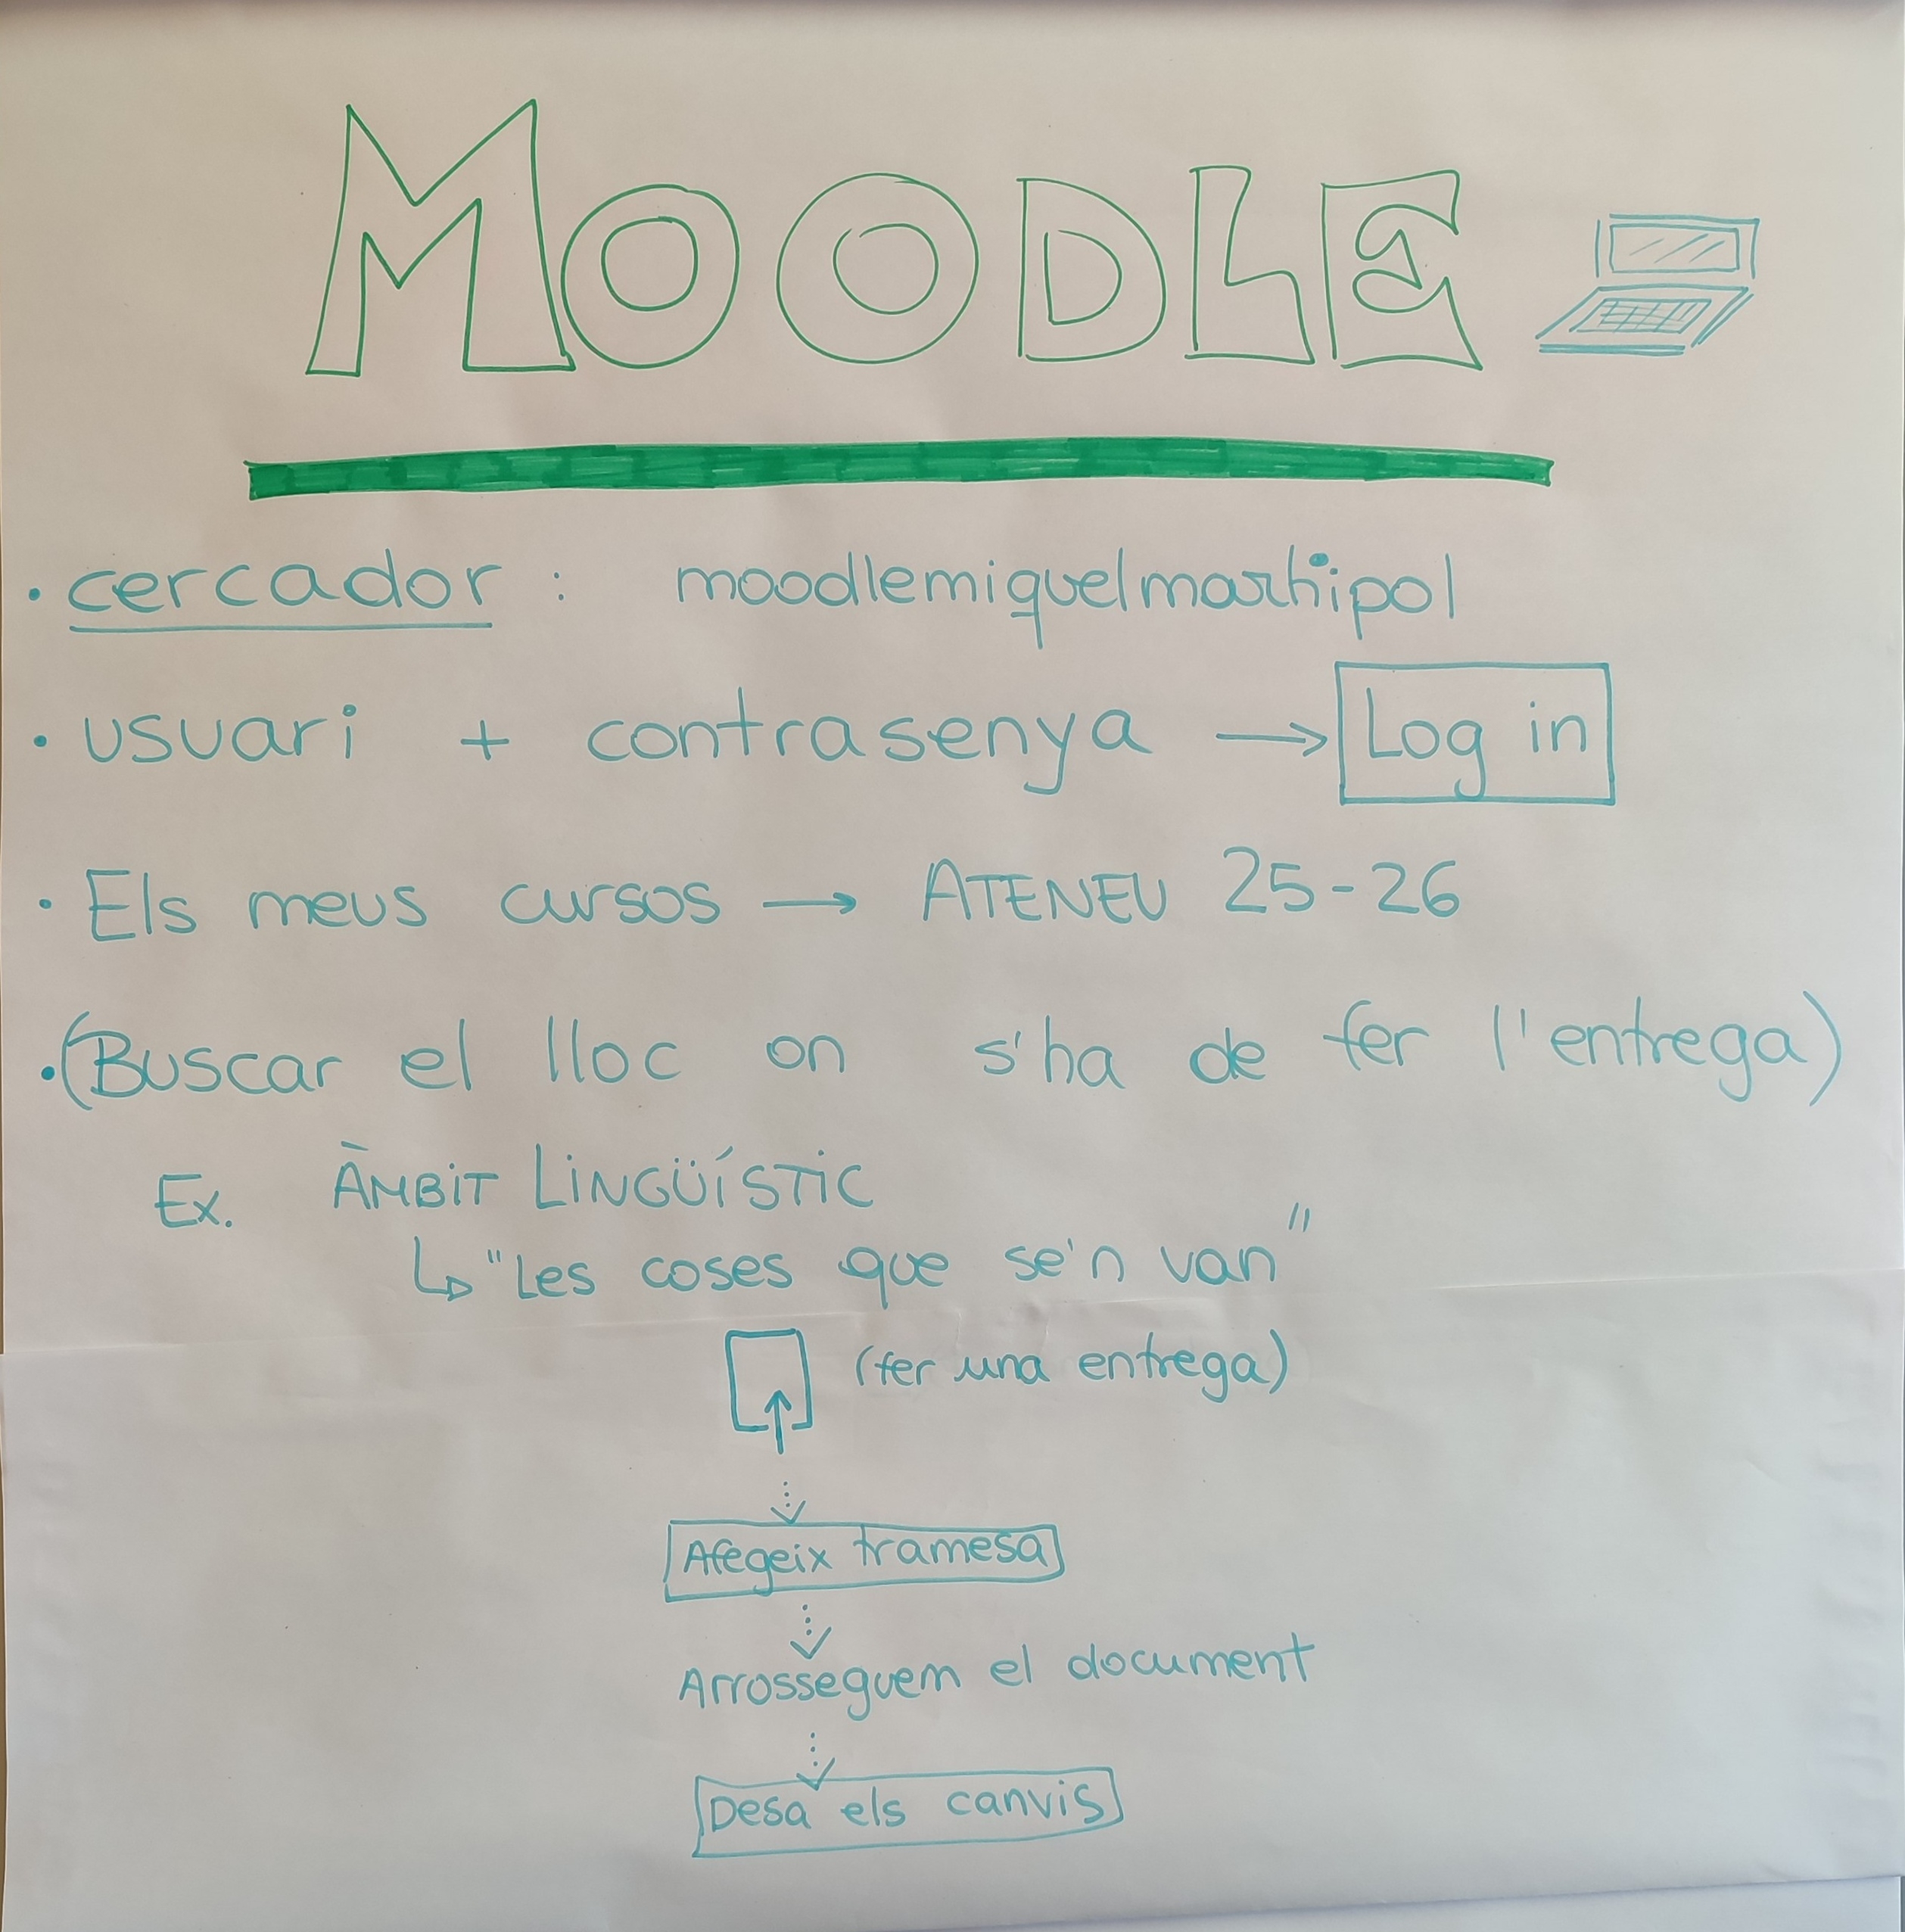 MOODLE
• cercador : moodlemiquelmartipol
• usuari + contrasenya → Log in
• Els meus cursos → ATENEU 25-26
• (Buscar el lloc on s'ha de fer l'entrega)
Ex. ÀMBiT LiNGÜíSTiC
↳ "Les coses que se'n van"
(fer una entrega)
Afegeix tramesa
Arrosseguem el document
Desa els canvis